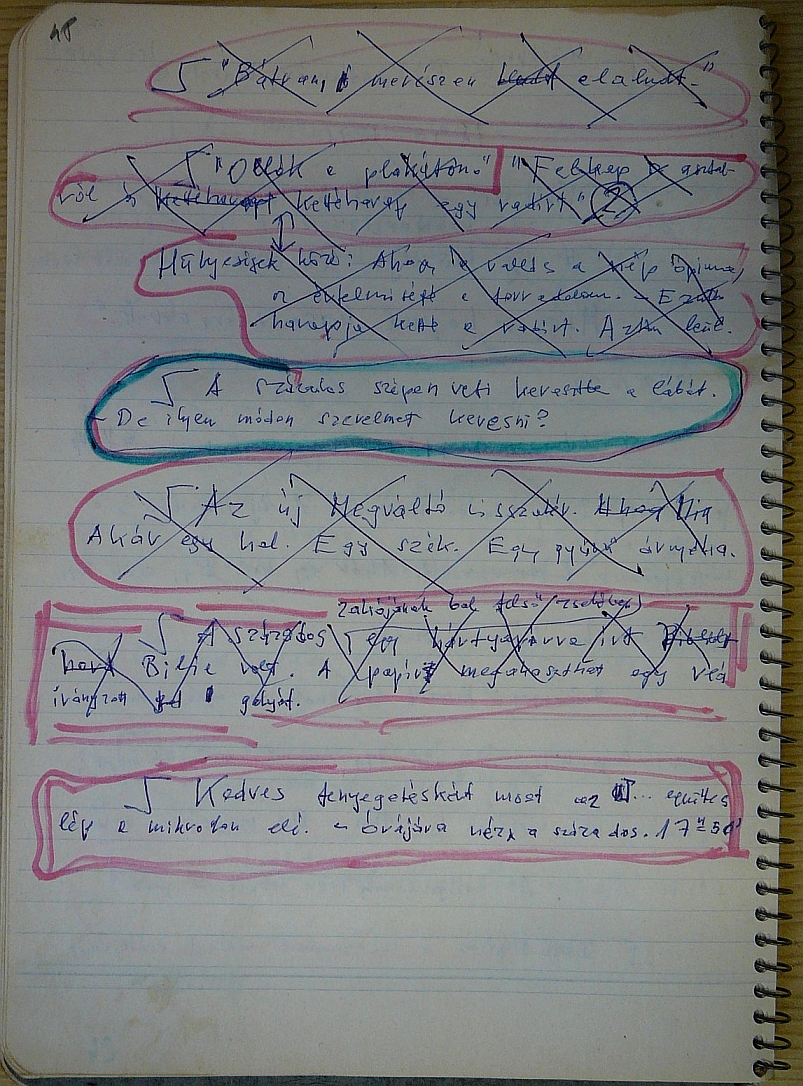 48
"Bátran, merészen elaludt."
"Ollók a plakáton." "Felkap az asztal-
ról és kettéharap egy radírt" 2
Hülyeségek közé: Ahogy a vallás a nép ópiuma,
az értelmiségé a forradalom. – Ezután
harapja ketté a radírt. Aztán leül.
A százados szépen veti keresztbe a lábát.
De ilyen módon szerelmet keresni?
Az új Megváltó visszatér.
Akár egy hal. Egy szék. Egy gyűrű árnyéka.
zakójának bal felső zsebében
A százados egy hártyapapírra írt
Biblie volt. A papír megakaszthat egy
irányzott golyót.
Kedves fenyegetésként most az ... együttes
lép a mikrofon elé. – órájára néz a százados. 17